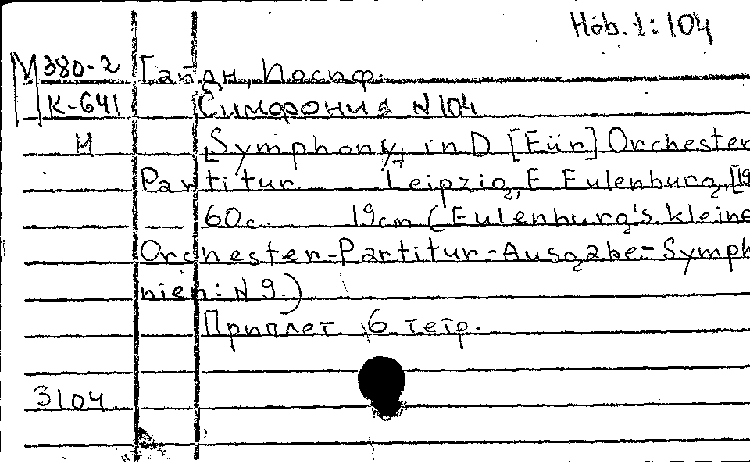 Hob. 1:104
М380-2 Гайдн, Иосиф.
К-641 Симфония N 104
И [Symphony, in D [Für] Orchester
Partitur Leipzig, E Eulenburg, [19
60с. 19cm (Eulenburg's kleine
Orchester-Partitur-Ausgabe-Symph
nien: N 9.)
Приплет 6 тетр.
3104